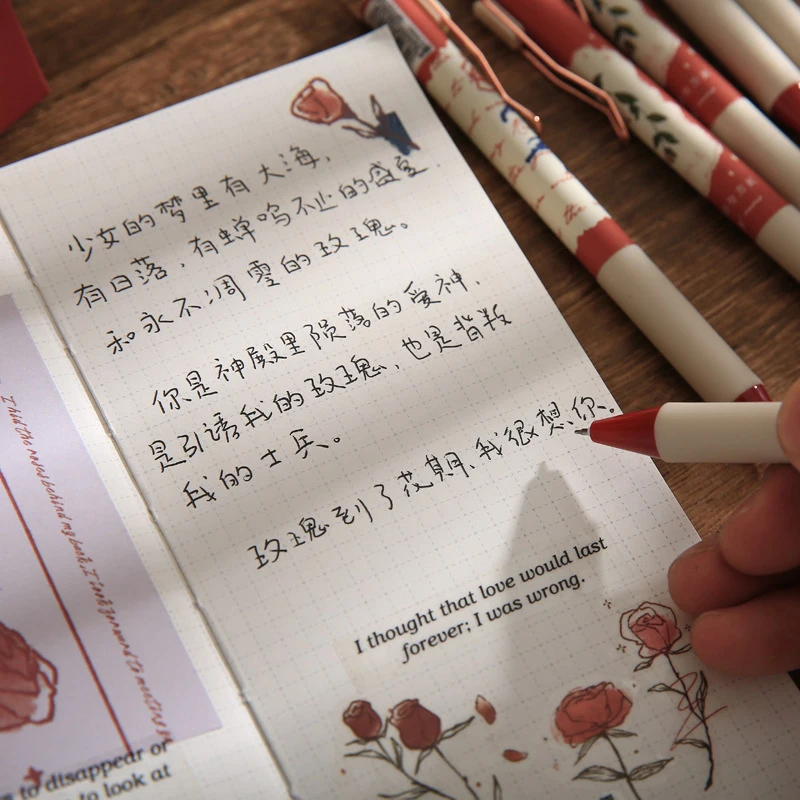 少女的梦里有大海,
有日落,有蝉鸣不止的盛夏.
和永不凋零的玫瑰。
你是神殿里陨落的爱神.
是引诱我的玫瑰,也是背叛
我的士兵。
玫瑰到了花期、我很想你。
I thought that love would last
forever; I was wrong.
I hid the roses behind my back. I look forward to meeting
to disappear or
to look at